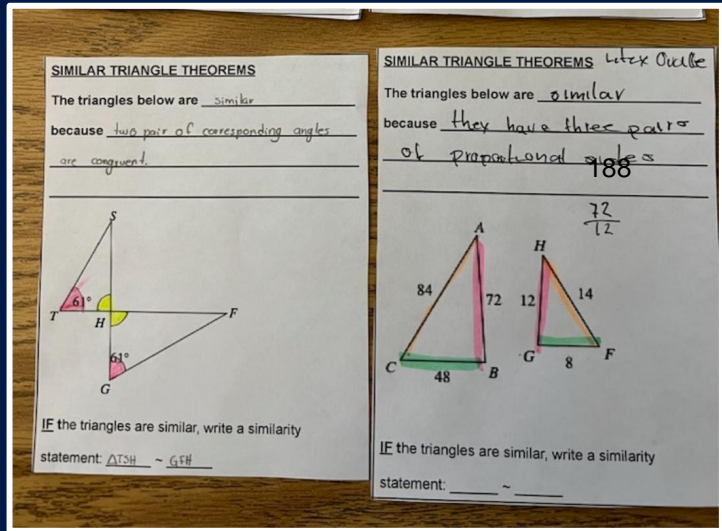 SIMILAR TRIANGLE THEOREMS
The triangles below are similar
because two pair of corresponding angles
are congruent.
S
61°
T
H
F
61°
G
IF the triangles are similar, write a similarity
statement: △TSH ~ GFH
SIMILAR TRIANGLE THEOREMS
The triangles below are similar
because they have three pairs
of proportional
188
72
12
A
H
84
72
12
14
C
48
B
G
8
F
IF the triangles are similar, write a similarity
statement: ~